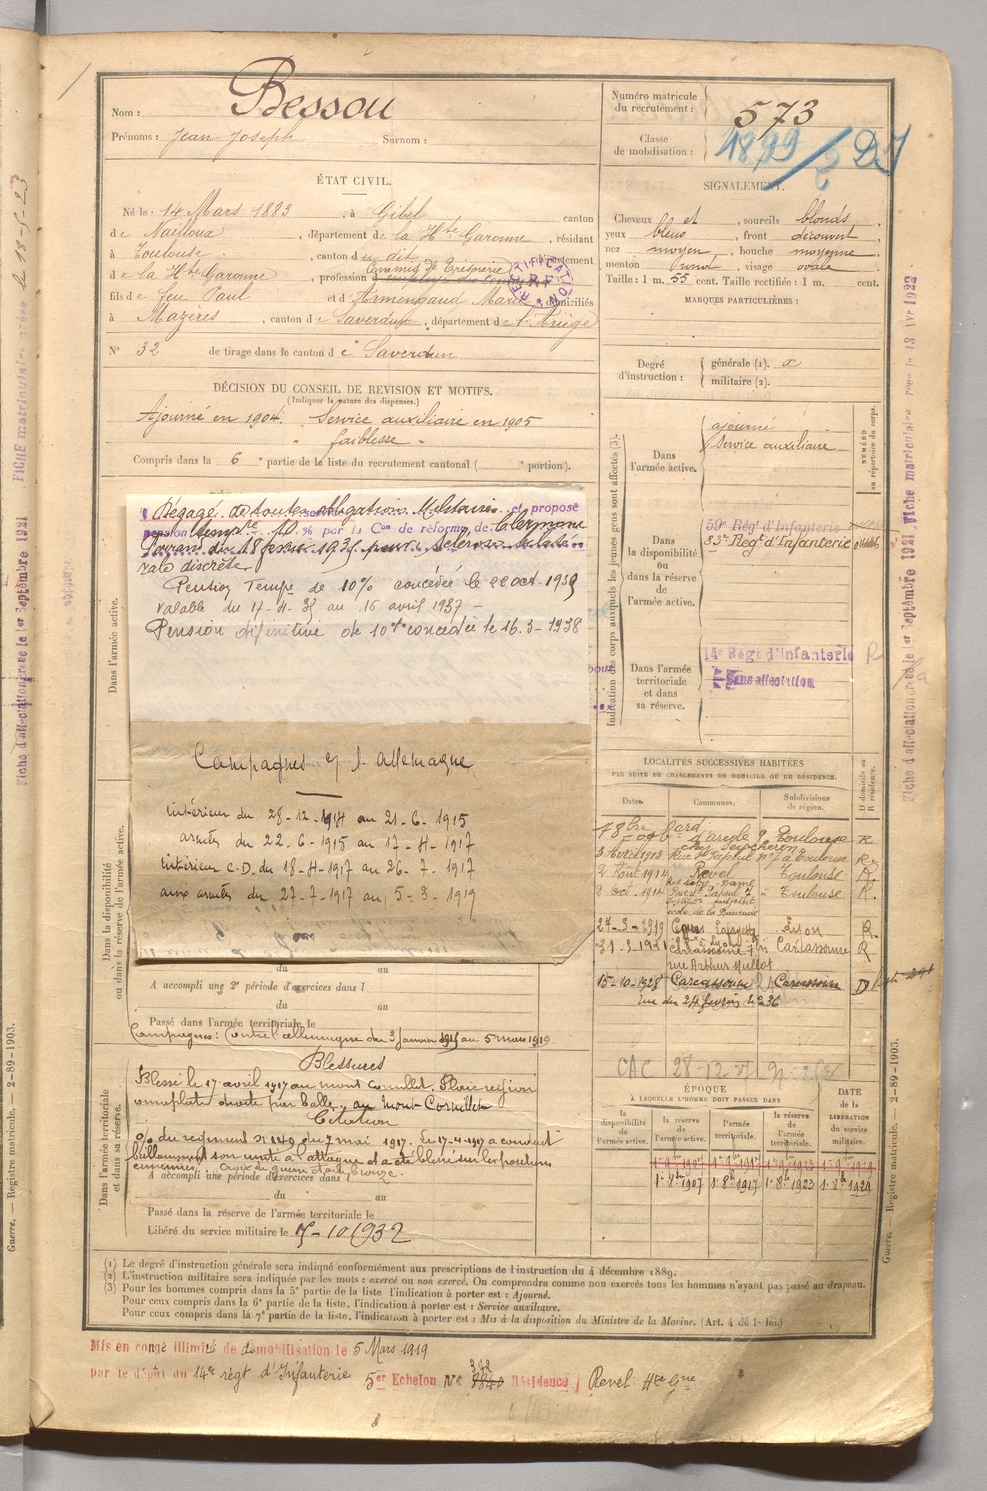 Nom : Bessou
Prénoms : Jean Joseph Surnom :
Numéro matricule du recrutement : 573
Classe de mobilisation : 1899
ÉTAT CIVIL.
Né le 14 Mars 1883, à Gibel canton
de Nailloux, département de la Hte Garonne, résidant
à Toulouse, canton du dit, département
de la Hte Garonne, profession Commis de Trésorerie
RECTIFICATION R.F.
fils de feu Paul et d'Armengaud Marie domiciliés
à Mazères, canton de Saverdun, département de l'Ariège
N° 32 de tirage dans le canton de Saverdun
SIGNALEMENT.
Cheveux et, sourcils blonds
yeux bleus, front découvert
nez moyen, bouche moyenne
menton rond, visage ovale
Taille : 1 m. 55 cent. Taille rectifiée : 1 m. cent.
MARQUES PARTICULIÈRES :
Degré d'instruction : générale (1). x
militaire (2).
DÉCISION DU CONSEIL DE REVISION ET MOTIFS.
(Indiquer la nature des dispenses.)
Ajourné en 1904. Service auxiliaire en 1905
faiblesse
Compris dans la 6e partie de la liste du recrutement cantonal ( portion).
Dégagé de toutes obligations Militaires et proposé
pension tempre 10 % par la Con de réforme de Clermont
discrète
Pension Tempre de 10% concédée le 22 oct. 1935
valable du 17-4-35 au 16 avril 1937 -
Pension définitive de 10% concédée le 16.3-1938
Campagnes c/ l'Allemagne
intérieur du 28-12-1914 au 21-6-1915
armées du 22-6-1915 au 17-4-1917
intérieur C.D. du 18-4-1917 au 26-7-1917
aux armées du 27-7-1917 au 5-3-1919
du au
A accompli une 2e période d'exercices dans l
du au
Passé dans l'armée territoriale le
Campagnes : Contre l'allemagne du 3 janvier 1915 au 5 mars 1919.
Blessures
Blessé le 17 avril 1917 au mont Cornillet. Plaie région
omoplate droite par balle, au Mont-Cornillet
Citation
O/ du régiment N° 149 du 7 mai 1917. Le 17-4-1917 a conduit
brillamment son unité à l'attaque et a été blessé sur les positions
ennemies. Croix de guerre étoile bronze.
A accompli une période d'exercices dans l
du au
Passé dans la réserve de l'armée territoriale le
Libéré du service militaire le 15-10-1932
Dans l'armée active.
Dans la disponibilité ou dans la réserve de l'armée active.
Dans l'armée territoriale et dans sa réserve.
Indication des corps auxquels les jeunes gens sont affectés (3).
NUMÉRO au répertoire du corps.
Dans l'armée active.
ajourné
Service auxiliaire
Dans la disponibilité ou dans la réserve de l'armée active.
59e Régt d'Infanterie
83e Régt d'Infanterie
Dans l'armée territoriale et dans sa réserve.
14e Régt d'Infanterie
Sans affectation
LOCALITÉS SUCCESSIVES HABITÉES
PAR SUITE DE CHANGEMENTS DE DOMICILE OU DE RÉSIDENCE.
Dates. Communes. Subdivisions de région. D domicile ou R résidence.
Toulouse R
3 Avril 1913 Toulouse R
2 Aout 1914 Revel Toulouse R
9 Oct. 1914 Toulouse R.
27-3-1919 Cours Lafayette Lyon R.
31-3-1921 Carcassonne Carcassonne R
rue Arthur Mullot
15-10-1928 Carcassonne Carcassonne D
rue du 24 février n° 36
CAC 28-12-
ÉPOQUE
À LAQUELLE L'HOMME DOIT PASSER DANS
la disponibilité de l'armée active. la réserve de l'armée active. l'armée territoriale. la réserve de l'armée territoriale. DATE de la LIBÉRATION du service militaire.
1er 9bre 1907 1er 9bre 1917 1er 9bre 1923 1er 9bre 1929
1er 8bre 1907 1er 8bre 1917 1er 8bre 1923 1er 8bre 1929
(1) Le degré d'instruction générale sera indiqué conformément aux prescriptions de l'instruction du 4 décembre 1889.
(2) L'instruction militaire sera indiquée par les mots : exercé ou non exercé. On comprendra comme non exercés tous les hommes n'ayant pas passé au drapeau.
(3) Pour les hommes compris dans la 5e partie de la liste l'indication à porter est : Ajourné.
Pour ceux compris dans la 6e partie de la liste, l'indication à porter est : Service auxiliaire.
Pour ceux compris dans la 7e partie de la liste, l'indication à porter est : Mis à la disposition du Ministre de la Marine. (Art. 4 de la loi.)
Mis en congé illimité de démobilisation le 5 Mars 1919
par le dépôt du 14e régt d'Infanterie 5er Echelon No 372 Résidence Revel Hte Gne
Guerre. — Registre matricule. — 2-89-1903.
Guerre. — Registre matricule. — 2-89-1903.
Fiche d'affectation créée le 1er Septembre 1921
FICHE matriculaire créée le 18-5-23
Fiche d'affectation créée le 1er Septembre 1921. Fiche matriculaire créée le 13 Avr 1922